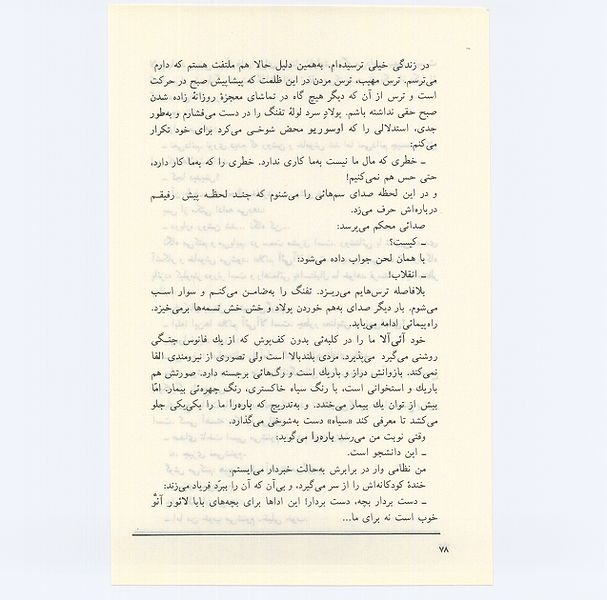 در زندگی خیلی ترسیده‌ام. به‌همین دلیل حالا هم ملتفت هستم که دارم
می‌ترسم. ترس مهیب، ترس مردن در این ظلمت که پیشاپیش صبح در حرکت
است و ترس از آن که دیگر هیچ گاه در تماشای معجزهٔ روزانهٔ زاده شدن
صبح حقی نداشته باشم. پولادِ سرد لولهٔ تفنگ را در دست می‌فشارم و به‌طور
جدی، استدلالی را که آوسوریو محض شوخی می‌کرد برای خود تکرار
می‌کنم:
ـ خطری که مال ما نیست به‌ما کاری ندارد. خطری را که به‌ما کار دارد،
حتی حس هم نمی‌کنیم!
و در این لحظه صدای سم‌هائی را می‌شنوم که چند لحظه پیش رفیقم
درباره‌اش حرف می‌زد.
صدائی محکم می‌پرسد:
ـ کیست؟
با همان لحن جواب داده می‌شود:
ـ انقلاب!
بلافاصله ترس‌هایم می‌ریزد. تفنگ را به‌ضامن می‌کنم و سوار اسب
می‌شوم. بار دیگر صدای به‌هم خوردن پولاد و خش خش تسمه‌ها برمی‌خیزد.
راه‌پیمائی ادامه می‌یابد.
خود آئی‌آلا ما را در کلبه‌ئی بدون کف‌پوش که از یك فانوس جنگی
روشنی می‌گیرد می‌پذیرد. مردی بلندبالا است ولی تصوری از نیرومندی القا
نمی‌کند. بازوانش دراز و باریك است و رگ‌هائی برجسته دارد. صورتش هم
باریك و استخوانی است، با رنگ سیاه خاکستری، رنگ چهره‌ئی بیمار. امّا
بیش از توان یك بیمار می‌خندد. و به‌تدریج که پاره‌را ما را یکی‌یکی جلو
می‌کشد تا معرفی کند «سیاه» دست به‌شوخی می‌گذارد.
وقتی نوبت من می‌رسد پاره‌را می‌گوید:
ـ این دانشجو است.
من نظامی وار در برابرش به‌حالت خبردار می‌ایستم.
خندهٔ کودکانه‌اش را از سر می‌گیرد، و بی‌آن که آن را ببرّد فریاد می‌زند:
ـ دست بردار بچه، دست بردار! این اداها برای بچه‌های بابا لائور آنو
خوب است نه برای ما...
۷۸